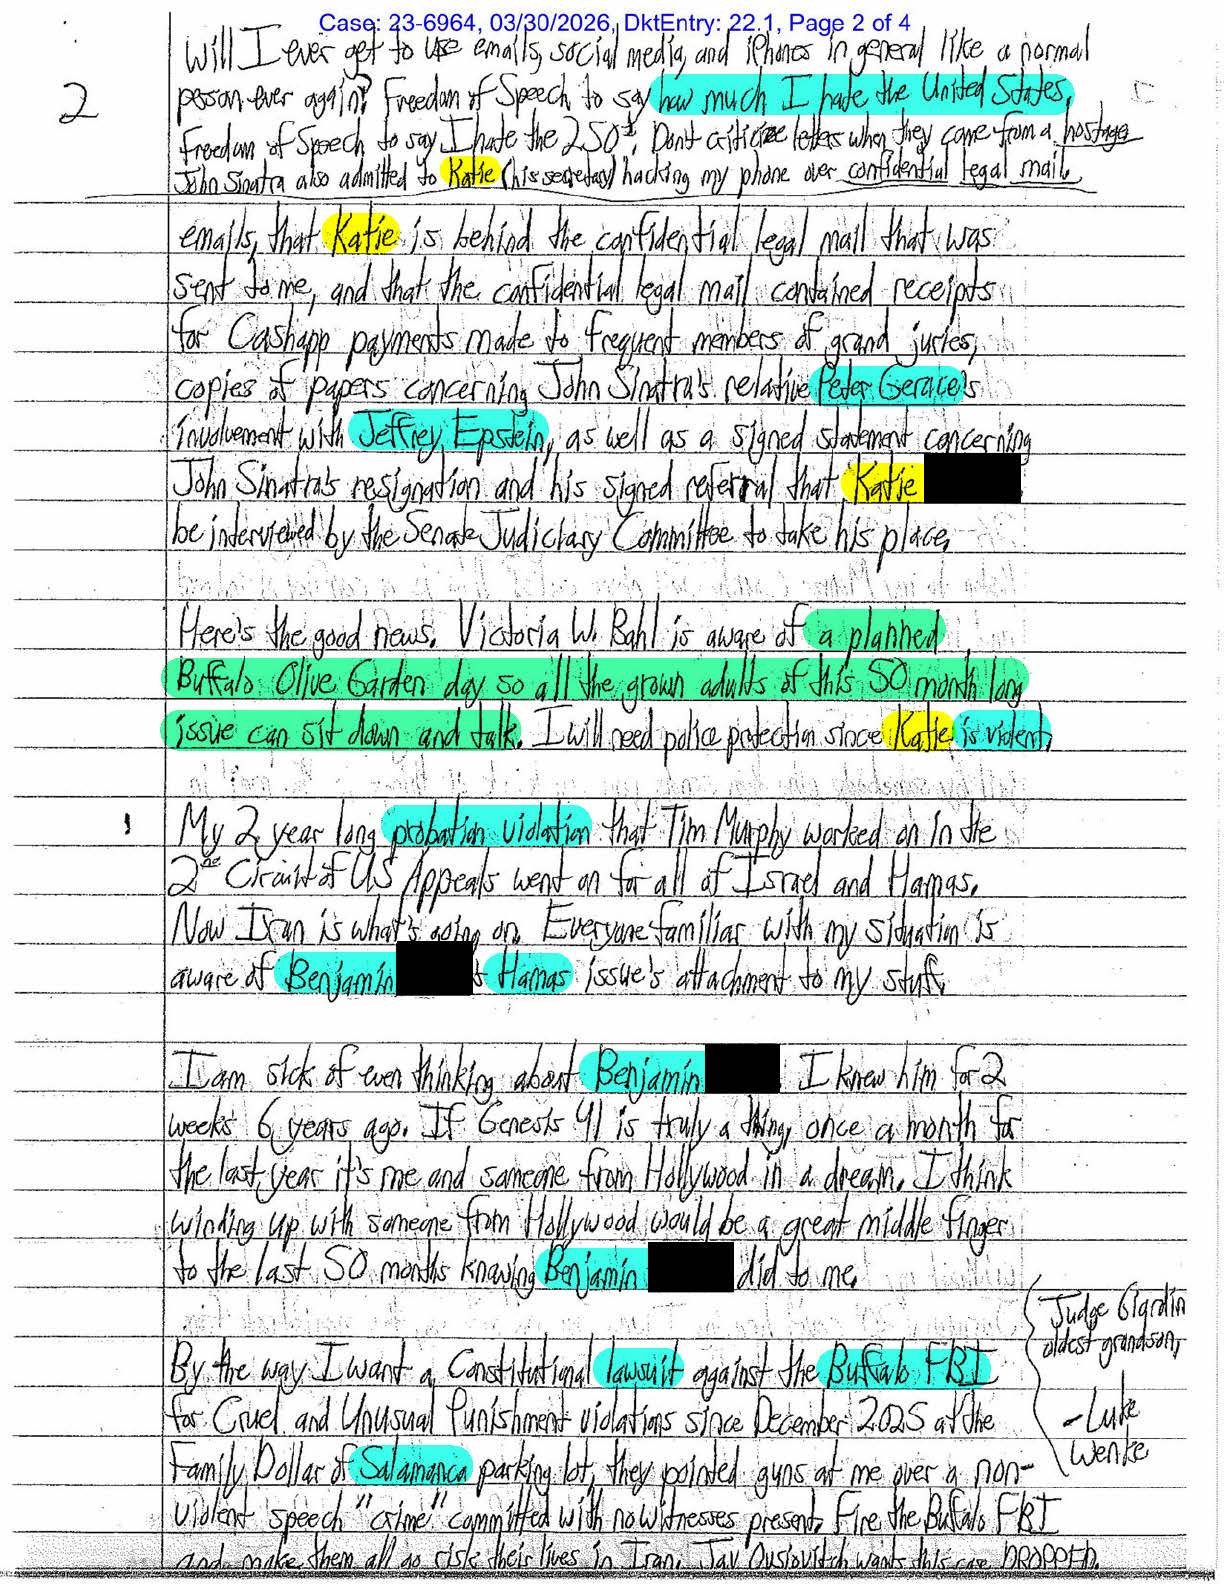 Case: 23-6964, 03/30/2026, DktEntry: 22.1, Page 2 of 4
Will I ever get to use emails, social media, and iPhones in general like a normal
2
person ever again? Freedom of Speech to say how much I hate the United States.
Freedom of Speech to say I hate the 250th. Dont criticize letters when they come from a hostage
John Sinatra also admitted to Katie (his secretary) hacking my phone over confidential legal mail.
emails, that Katie is behind the confidential legal mail that was
sent to me, and that the confidential legal mail contained receipts
for Cashapp payments made to frequent members of grand juries,
copies of papers concerning John Sinatra's relative Peter Gerace's
involvement with Jeffrey Epstein, as well as a signed statement concerning
John Sinatra's resignation and his signed referral that Katie
be interviewed by the Senate Judiciary Committee to take his place.
Here's the good news. Victoria W. Bahl is aware of a planned
Buffalo Olive Garden day so all the grown adults of this 50 month long
issue can sit down and talk. I will need police protection since Katie is violent.
My 2 year long probation violation that Tim Murphy worked on in the
2nd Circuit of US Appeals went on for all of Israel and Hamas.
Now Iran is what's going on. Everyone familiar with my situation is
aware of Benjamin Hamas issue's attachment to my stuff.
I am sick of even thinking about Benjamin I knew him for 2
weeks 6 years ago. If Genesis 41 is truly a thing, once a month for
the last year it's me and someone from Hollywood in a dream. I think
winding up with someone from Hollywood would be a great middle finger
to the last 50 months knowing Benjamin did to me.
By the way I want a Constitutional lawsuit against the Buffalo FBI
for Cruel and Unusual Punishment violations since December 2025 at the
Family Dollar of Salamanca parking lot, they pointed guns at me over a non-
violent speech "crime" committed with no witnesses present. Fire the Buffalo FBI
and make them all go risk their lives in Iran. Jay Ovsiovitch wants this case DROPPED.
Judge Giardin
oldest grandson,
- Luke
Wenke